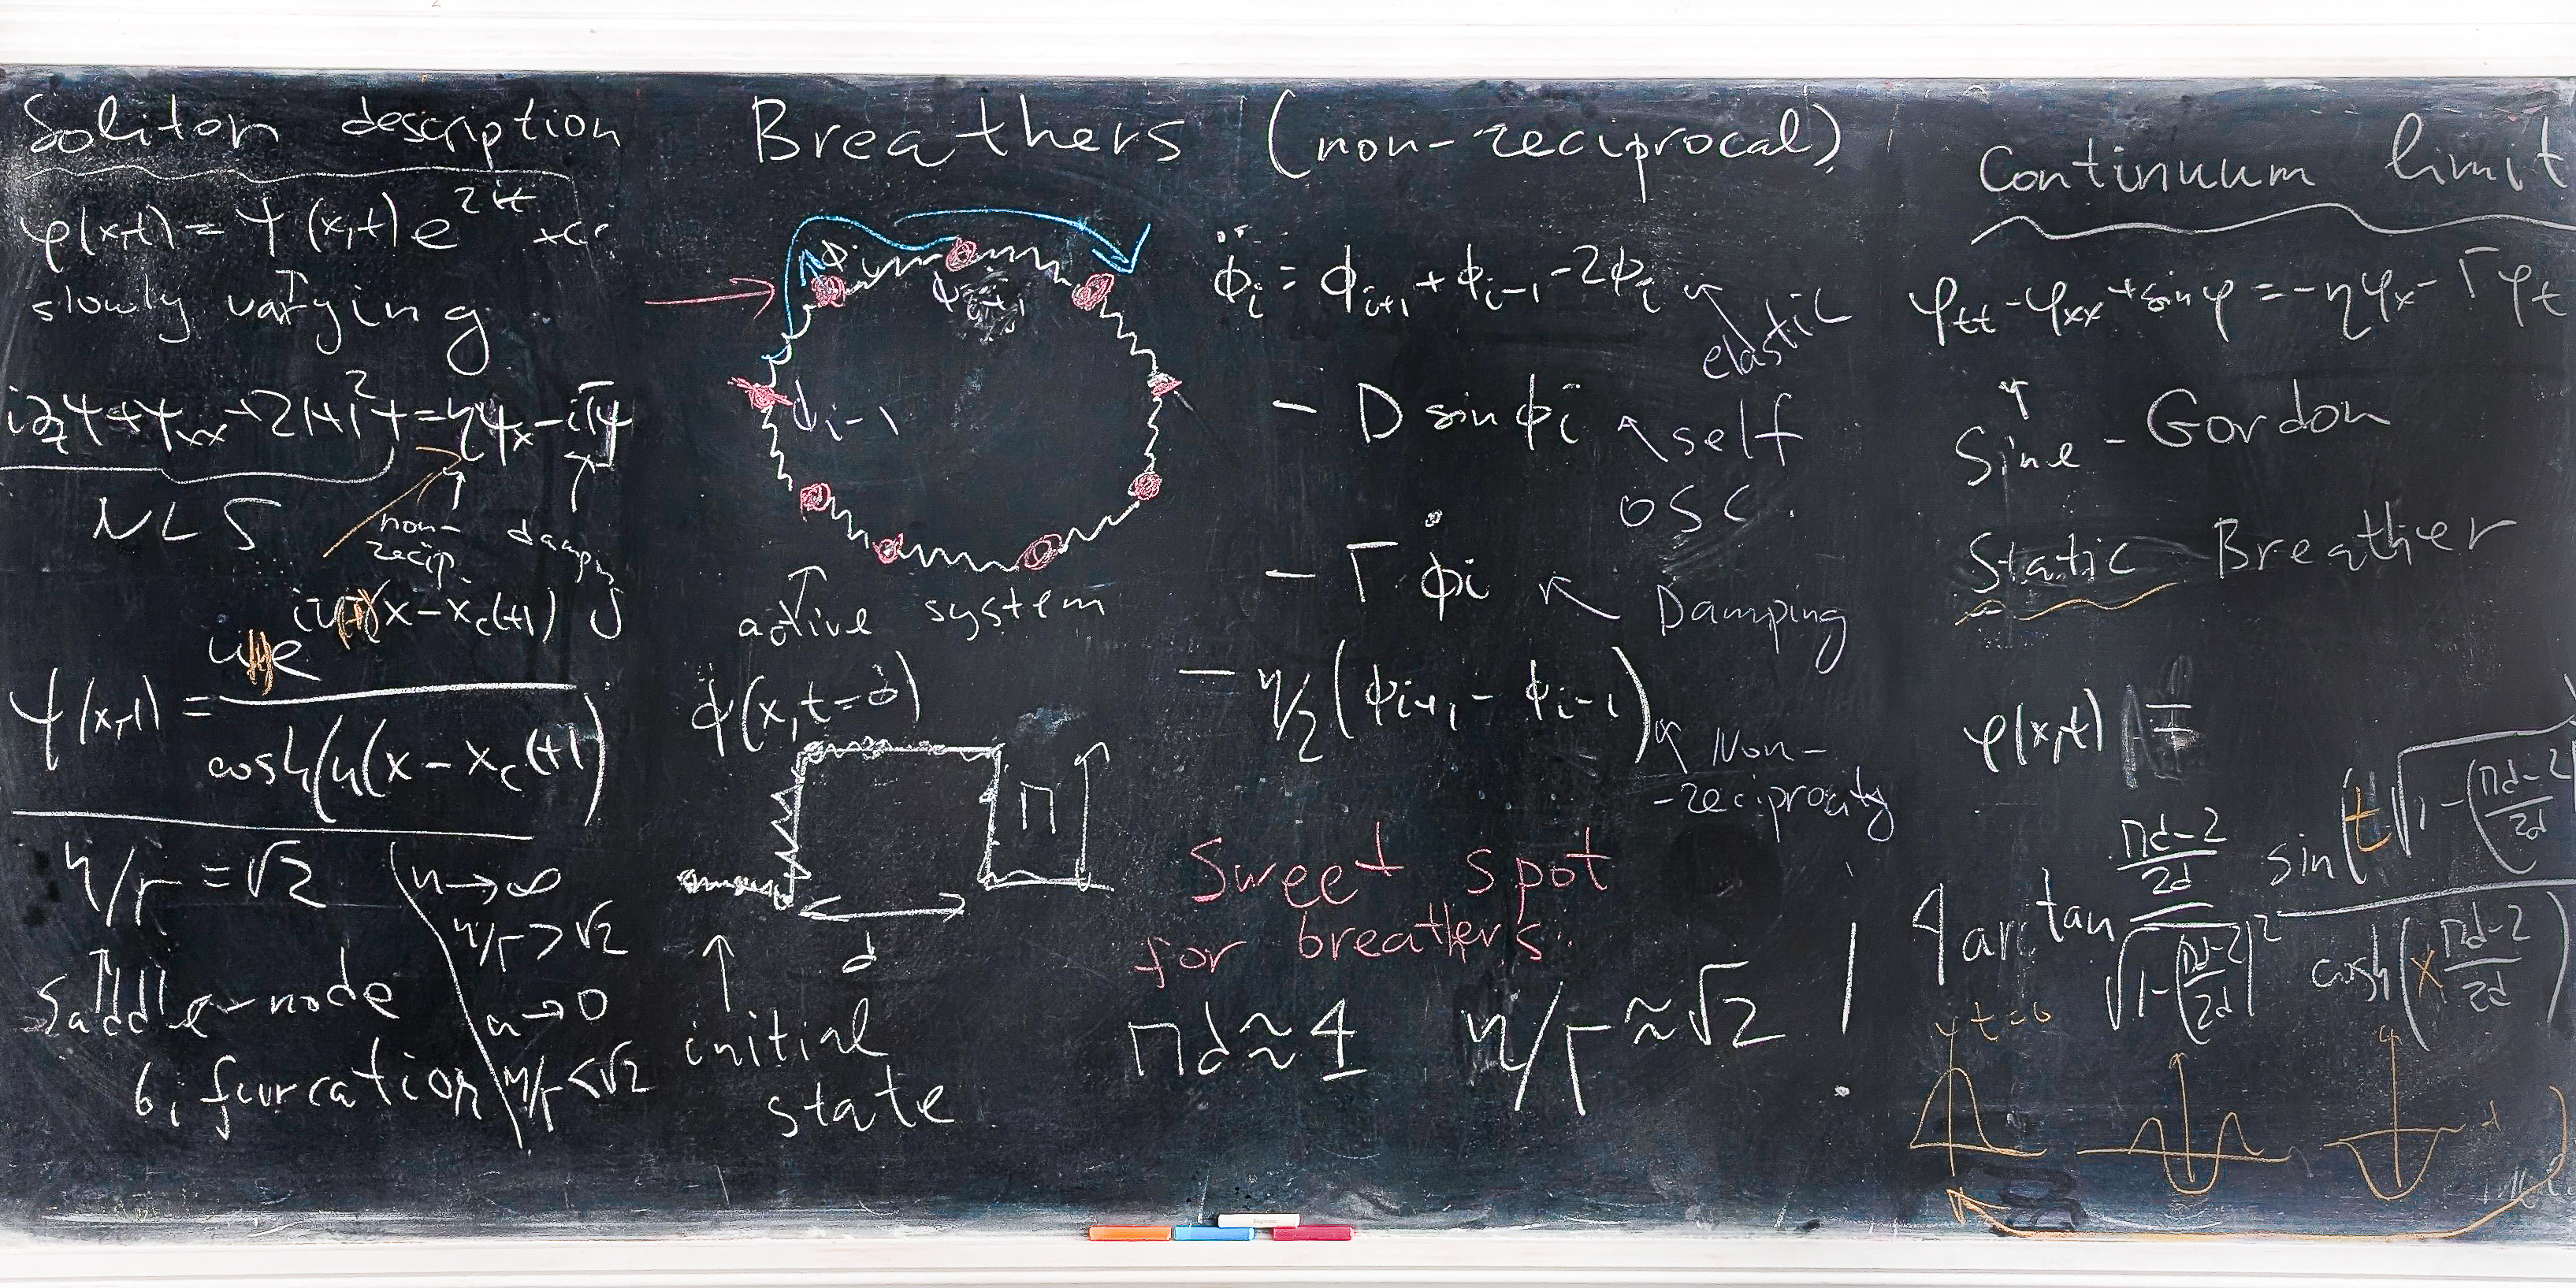 Soliton description
φ(x,t) = Ψ(x,t) e^{2it} + cc
slowly varying
i∂_tΨ + Ψ_xx + 2|Ψ|²Ψ = ηΨ_x - iΓΨ
NLS
non-
recip.
damping
Ψ(x,t) =
cosh(u(x - x_c(t))
η/Γ = √2
saddle-node
bifurcation
u → ∞
η/Γ > √2
u → 0
η/Γ < √2
Breathers (non-reciprocal)
ϕ_i
ϕ_{i+1}
ϕ_{i-1}
active system
ϕ(x,t=0)
Π
d
initial
state
ϕ̈_i = ϕ_{i+1} + ϕ_{i-1} - 2ϕ_i
elastic
- D sin ϕ_i
self
osc.
- Γ ϕ̇_i
Damping
- η/2 (ϕ_{i+1} - ϕ_{i-1})
Non-
-reciprocity
Sweet spot
for breathers:
Πd ≈ 4 η/Γ ≈ √2 !
Continuum limit
φ_tt - φ_xx + sin φ = -ηφ_x - Γφ_t
Sine-Gordon
Static Breather
φ(x,t) =
4 arctan \frac{\frac{Πd-2}{2d}}{\sqrt{1-(\frac{Πd-2}{2d})^2}} \frac{sin(t\sqrt{1-(\frac{Πd-2}{2d}}}{cosh(x \frac{Πd-2}{2d})}
t=0